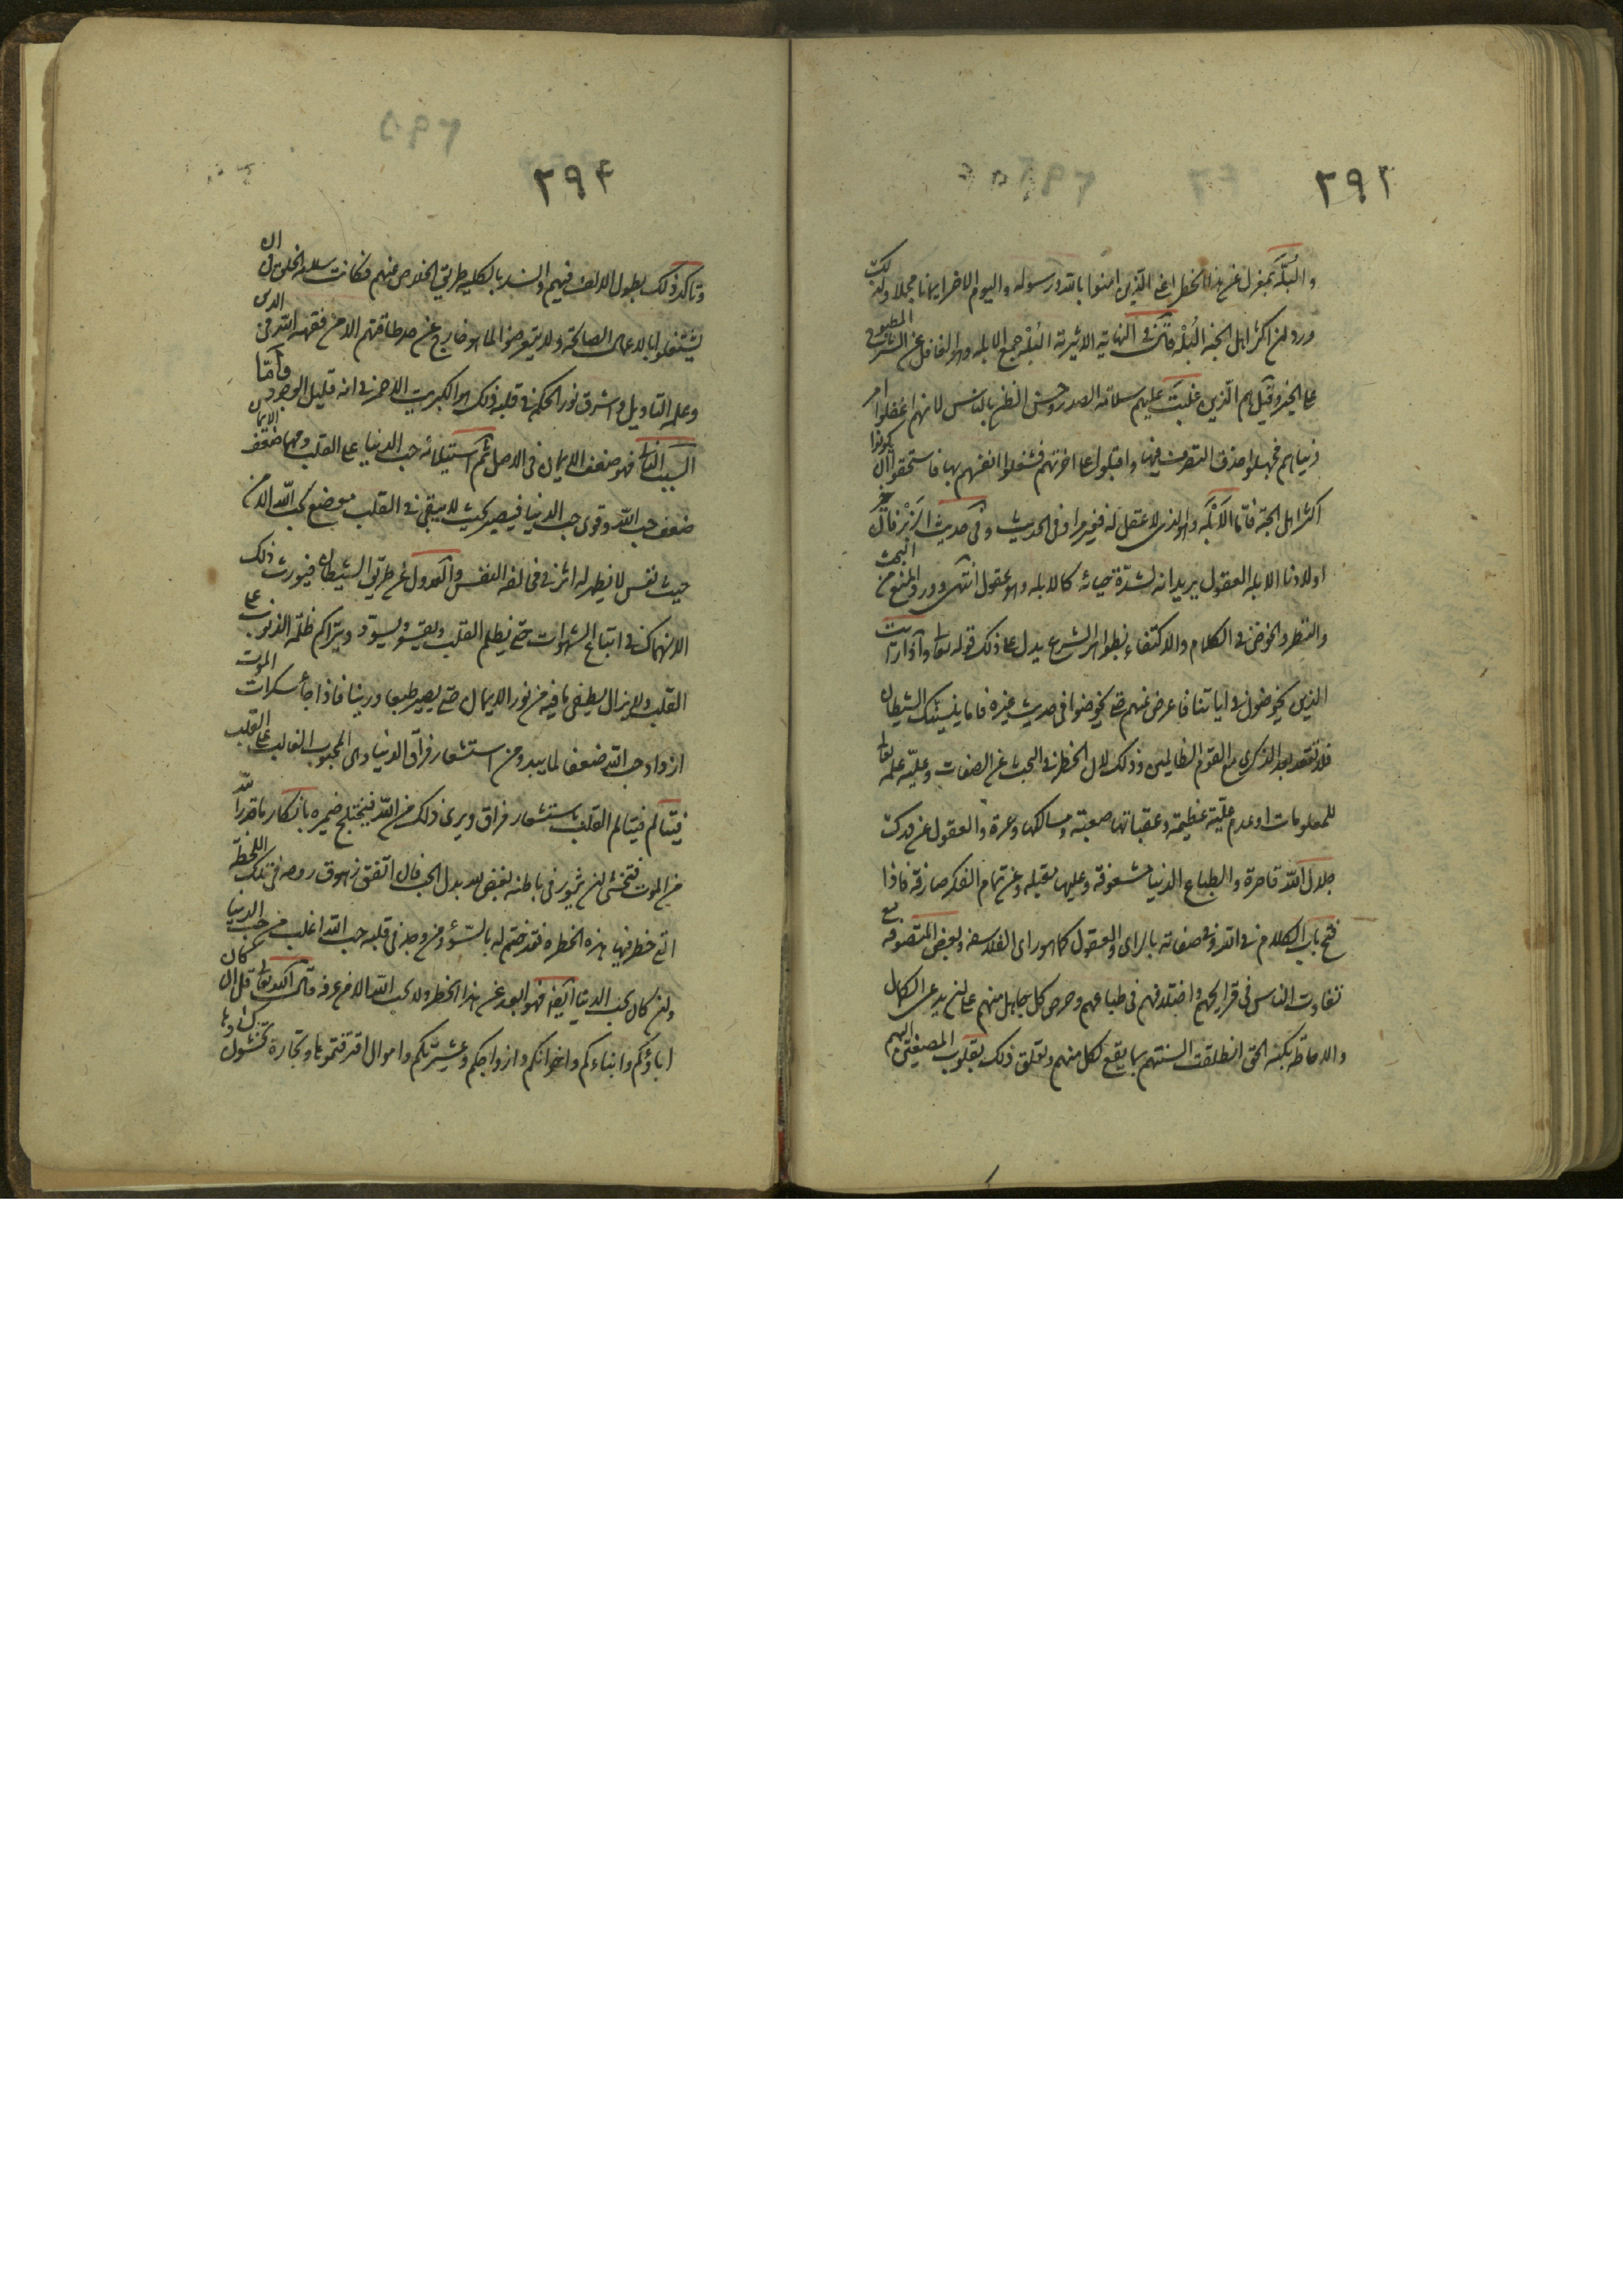 ٢٩٣
والبله بمعزل عن هذا الخطر اعني الذين امنوا بالله ورسوله واليوم الاخر ايمانا مجملا ولذلك
ورد ان اكثر اهل الجنة البله قال في النهاية الاثيرية البله جمع الابله وهو الغافل عن الشر المطبوع
على الخير وقيل هم الذين غلبت عليهم سلامة الصدر وحسن الظن بالناس لانهم غفلوا امر
دنياهم فجهلوا حذق التصرف فيها واقبلوا على اخرتهم فشغلوا انفسهم بها فاستحقوا ان يكونوا
اكثر اهل الجنة فاما الابله وهو الذي لا عقل له فغير مراد في الحديث وفي حديث الزبرقان خير
اولادنا الابله العقول يريد انه لشدة حيائه كالابله وهو عقول انتهى وورد المنع من البحث
والنظر والخوض في الكلام والاكتفاء بظواهر الشرع يدل على ذلك قوله تعالى واذا رايت
الذين يخوضون في اياتنا فاعرض عنهم حتى يخوضوا في حديث غيره فاما ينسينك الشيطان
فلا تقعد بعد الذكرى مع القوم الظالمين وذلك لان الخطر في البحث عن الصفات وعلية علمه تعالى
للمعلومات او عدم عليته عظيمة وعقباتها صعبة ومسالكها وعرة والعقول عن درك
جلال الله قاصرة والطباع الدنيا مشغوفة وعليها مقبلة وعن تمام الفكر صارفة فاذا
فتح باب الكلام في الله وفي صفاته بالراي والعقول كما هو راى الفلاسفه وبعض المتصوفة مع
تفاوت الناس في قرايحهم واختلافهم في طباعهم وحرص كل جاهل منهم على ان يدعى الكمال
والاحاطة بكنه الحق انطلقت السنتهم بما يقع لكل منهم وتعلق ذلك بقلوب المصغين اليهم
٢٩٤
وتاكد ذلك بطول الالف فيهم وانسد بالكلية طريق الخلاص عنهم فكانت سلامة الخلق في ان
يشتغلوا بالاعمال الصالحة ولا يتعرضوا لما هو خارج عن حد طاقتهم الا من فقهه الله في الدين
وعلمه التاويل واشرق نور الحكمة في قلبه وذلك هو الكبريت الاحمر في انه قليل الوجود واما
السبب الثاني فهو ضعف الايمان في الاصل ثم استيلائه حب الدنيا على القلب ومهما ضعف الايمان
ضعف حب الله وقوى حب الدنيا فيصير بحيث لا يبقى في القلب موضع لحب الله الا من
حيث نفس لا يظهر له اثر في مخالفة النفس والعدول عن طريق الشيطان فيورث ذلك
الانهماك في اتباع الشهوات حتى يظلم القلب ويقسو ويسود ويتراكم ظلمة الذنوب على
القلب ولا يزال يطفي ما فيه من نور الايمان حتى يصير طبعا ورينا فاذا جأ سكرات الموت
ازداد حب الله ضعفا لما يبدو من استشعار فراق الدنيا وهي المحبوب الغالب على القلب
فيتالم القلب باستشعار فراق ويرى ذلك من الله فيختلج ضميره بانكار ما قدر الله
من الموت فتخشى ان يثور في باطنه بغض الله بدل الحب فان اتفق زهوق روحه في تلك اللحظة
التي خطر فيها هذه الخطرة فقد ختم له بالسؤ ومن وجد في قلبه حب الله اغلب من حب الدنيا
وان كان يحب الدنيا ايضا فهو ابعد عن هذا الخطر ولا يحب الله الا من عرفه قال الله تعالى قل ان كان
اباؤكم وابناءكم واخوانكم وازواجكم وعشيرتكم واموال اقترفتموها وتجارة تخشون كسادها